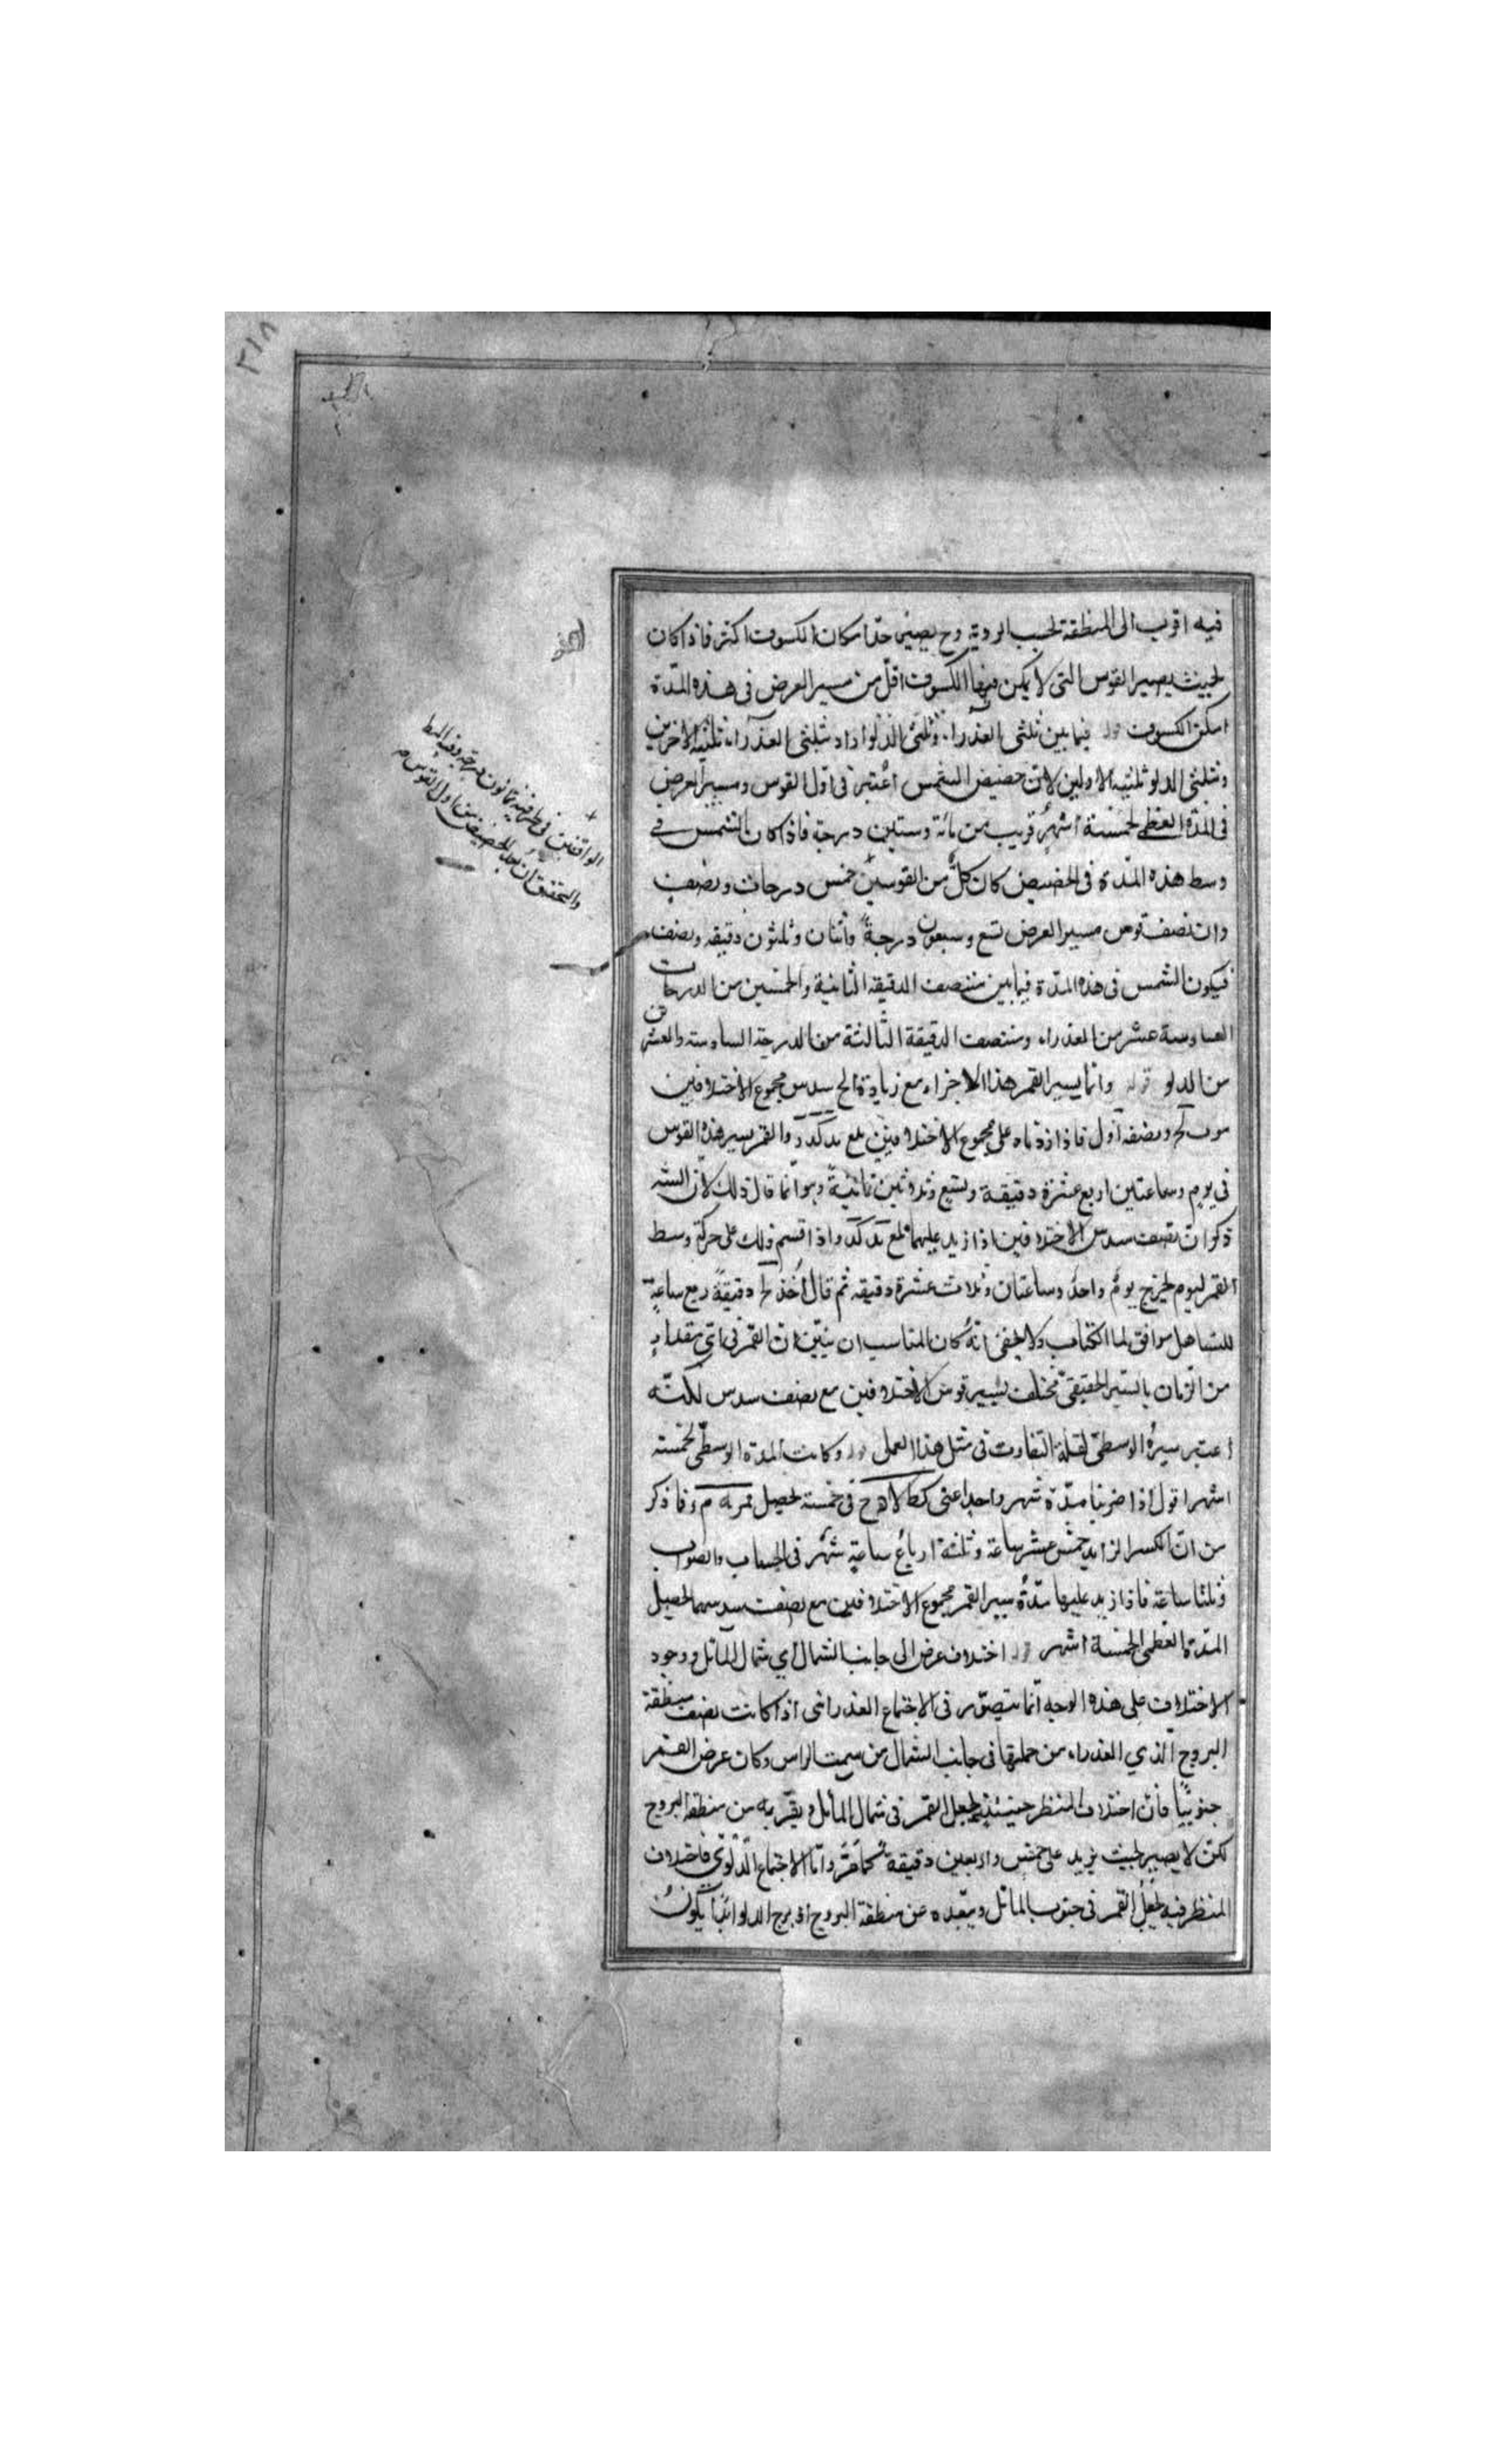 فيه اقرب الى المنطقة بحسب الروية وح يصير حد امكان الكسوف اكثر فاذا كان
بحيث يصير القوس التى لا يمكن فيها الكسوف اقل من مسير العرض فى هذه المدة
امكن الكسوف قوله فيما بين ثلثى العذراء وثلثى الدلو اراد بثلثى العذراء ثلثيه الاخرين
وبثلثى الدلو ثلثيه الاولين لان حضيض الشمس اعتبر فى اول القوس ومسير العرض
فى المدة العظمى لخمسة اشهر قريب من مائة وستين درجة فاذا كان الشمس فى
وسط هذه المدة فى الحضيض كان كل من القوسين خمس درجات ونصف
وان نصف قوس مسير العرض تسع وسبعون درجة واثنان وثلثون دقيقه ونصف
فيكون الشمس فى هذه المدة فيما بين منتصف الدقيقه الثانية والخمسين من الدرجات
السادسة عشر من العذراء ومنتصف الدقيقة الثالثة من الدرجة السادسة والعشرين
من الدلو قوله وانما يسير القمر هذا الاجزاء مع زيادة الخ سدس مجموع الاختلافين
ونصفه اول فاذا زدناه على مجموع الاختلافين بلغ يد كد د والقمر يسير هذه القوس
فى يوم وساعتين اربع عشرة دقيقة وتسع وثلاثين ثانية وهو انما قال ذلك لان الشه
ذكر ان نصف سدس الاختلافين اذا زيد عليهما بلغ يد كد واذا قسم ذلك على حركة وسط
القمر ليوم يخرج يوم واحد وساعتان وثلاث عشرة دقيقه ثم قال اخذ دقيقة ربع ساعة
للتساهل موافق لما الكتاب ولا يخفى انه كان المناسب ان يبين ان القمر فى اى مقدار
من الزمان بالسير الحقيقى مختلف يسير قوس الاختلافين مع نصف سدس لكنه
اعتبر سيره الوسطى لقلة التفاوت فى مثل هذا العمل قوله وكانت المدة الوسطى لخمسة
اشهر اقول اذا ضربنا مدة شهر واحد اعنى كط لا فى خمسة يحصل وما ذكر
من ان الكسر الزايد خمس عشر ساعة وثلثة ارباع ساعة شهر فى الحساب والصواب
وثلثا ساعة فاذا زيد عليها مدة سير القمر مجموع الاختلافين مع نصف سدسهما يحصل
المدة العظمى لخمسة اشهر قوله اختلاف عرض الى جانب الشمال اى شمال المائل ووجود
الاختلاف على هذه الوجه انما يتصور فى الاجتماع العذرائى اذا كانت نصف منطقة
البروج الذي العذراء من جملتها فى جانب الشمال من سمت الراس وكان عرض القمر
جنوبيا فان اختلاف المنظر حينئذ يجعل القمر فى شمال المائل ويقربه من منطقة البروج
لكن لا يصير بحيث يزيد على خمس واربعين دقيقة كما مر واما الاجتماع الدلوى فاختلاف
المنظر فيه يجعل القمر فى جنوب المائل ويبعده عن منطقة البروج اذ برج الدلو ابدا يكون
الواقفين فى طرفيه ثمانون درجة
والتحقيق ان بعد الحضيض من اول القوس
٢١٨